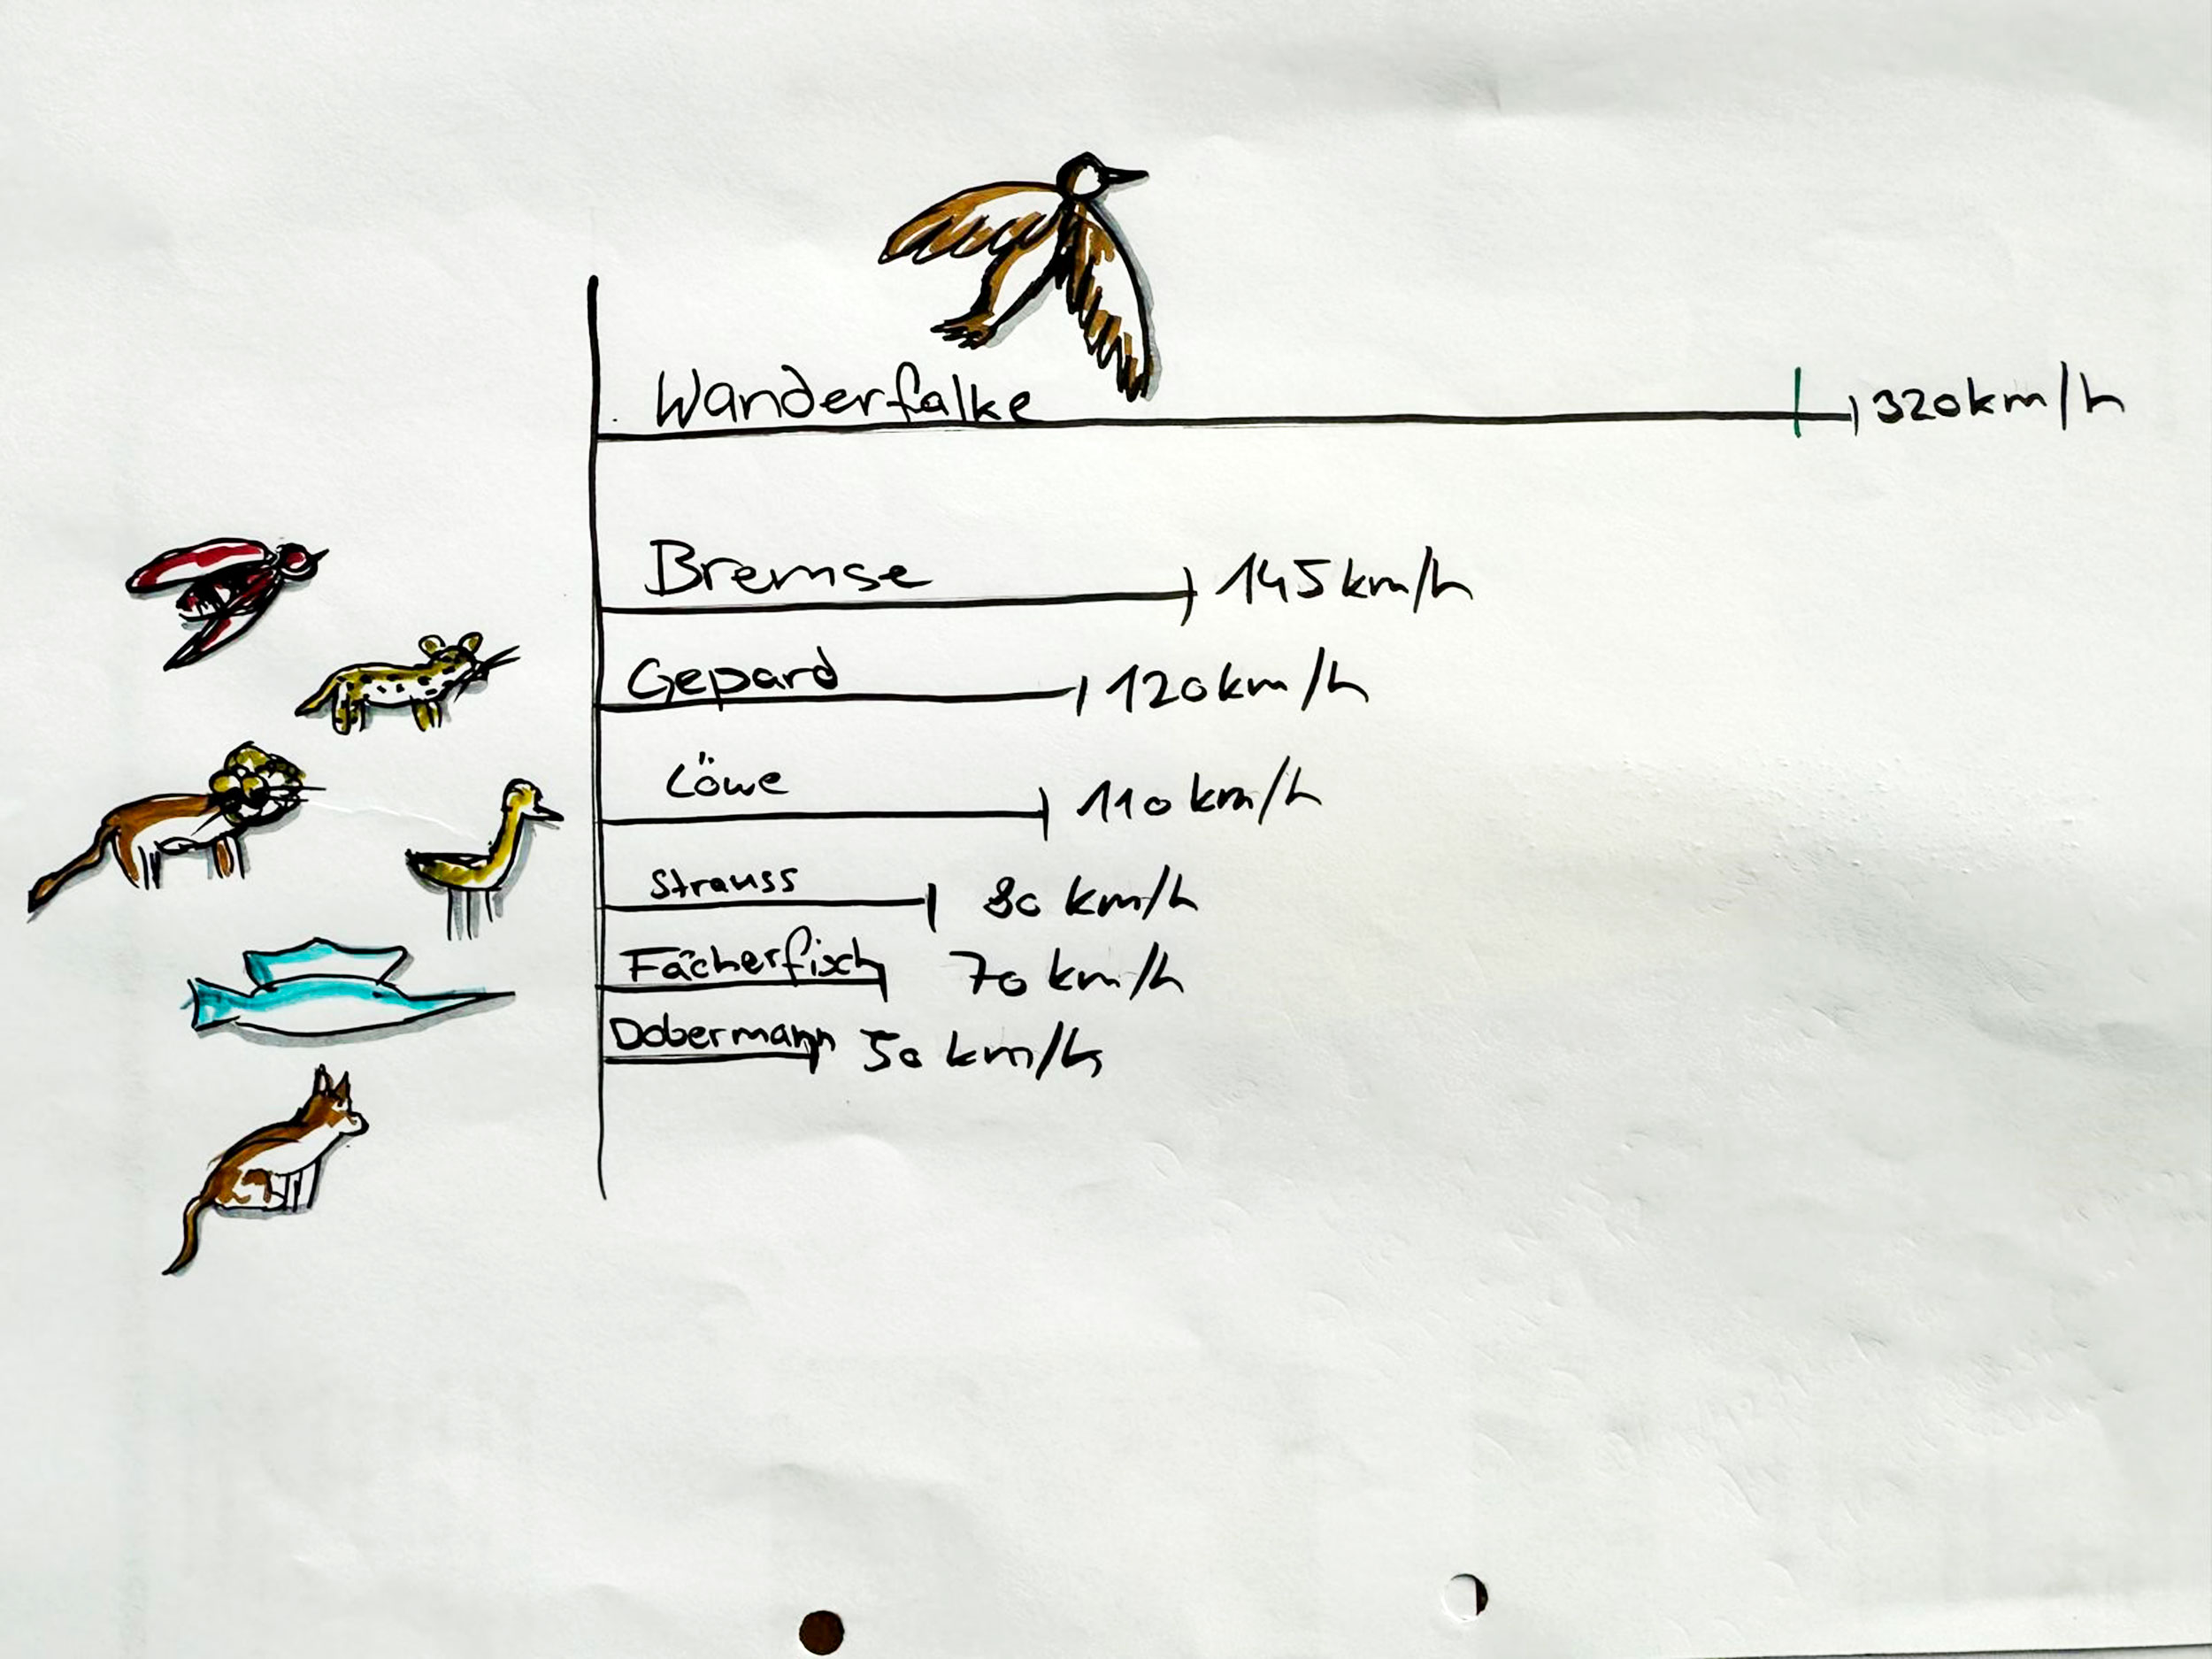 Wanderfalke 320km/h
Bremse 145km/h
Gepard 120km/h
Löwe 110km/h
Strauss 80 km/h
Fächerfisch 70 km/h
Dobermann 50 km/h